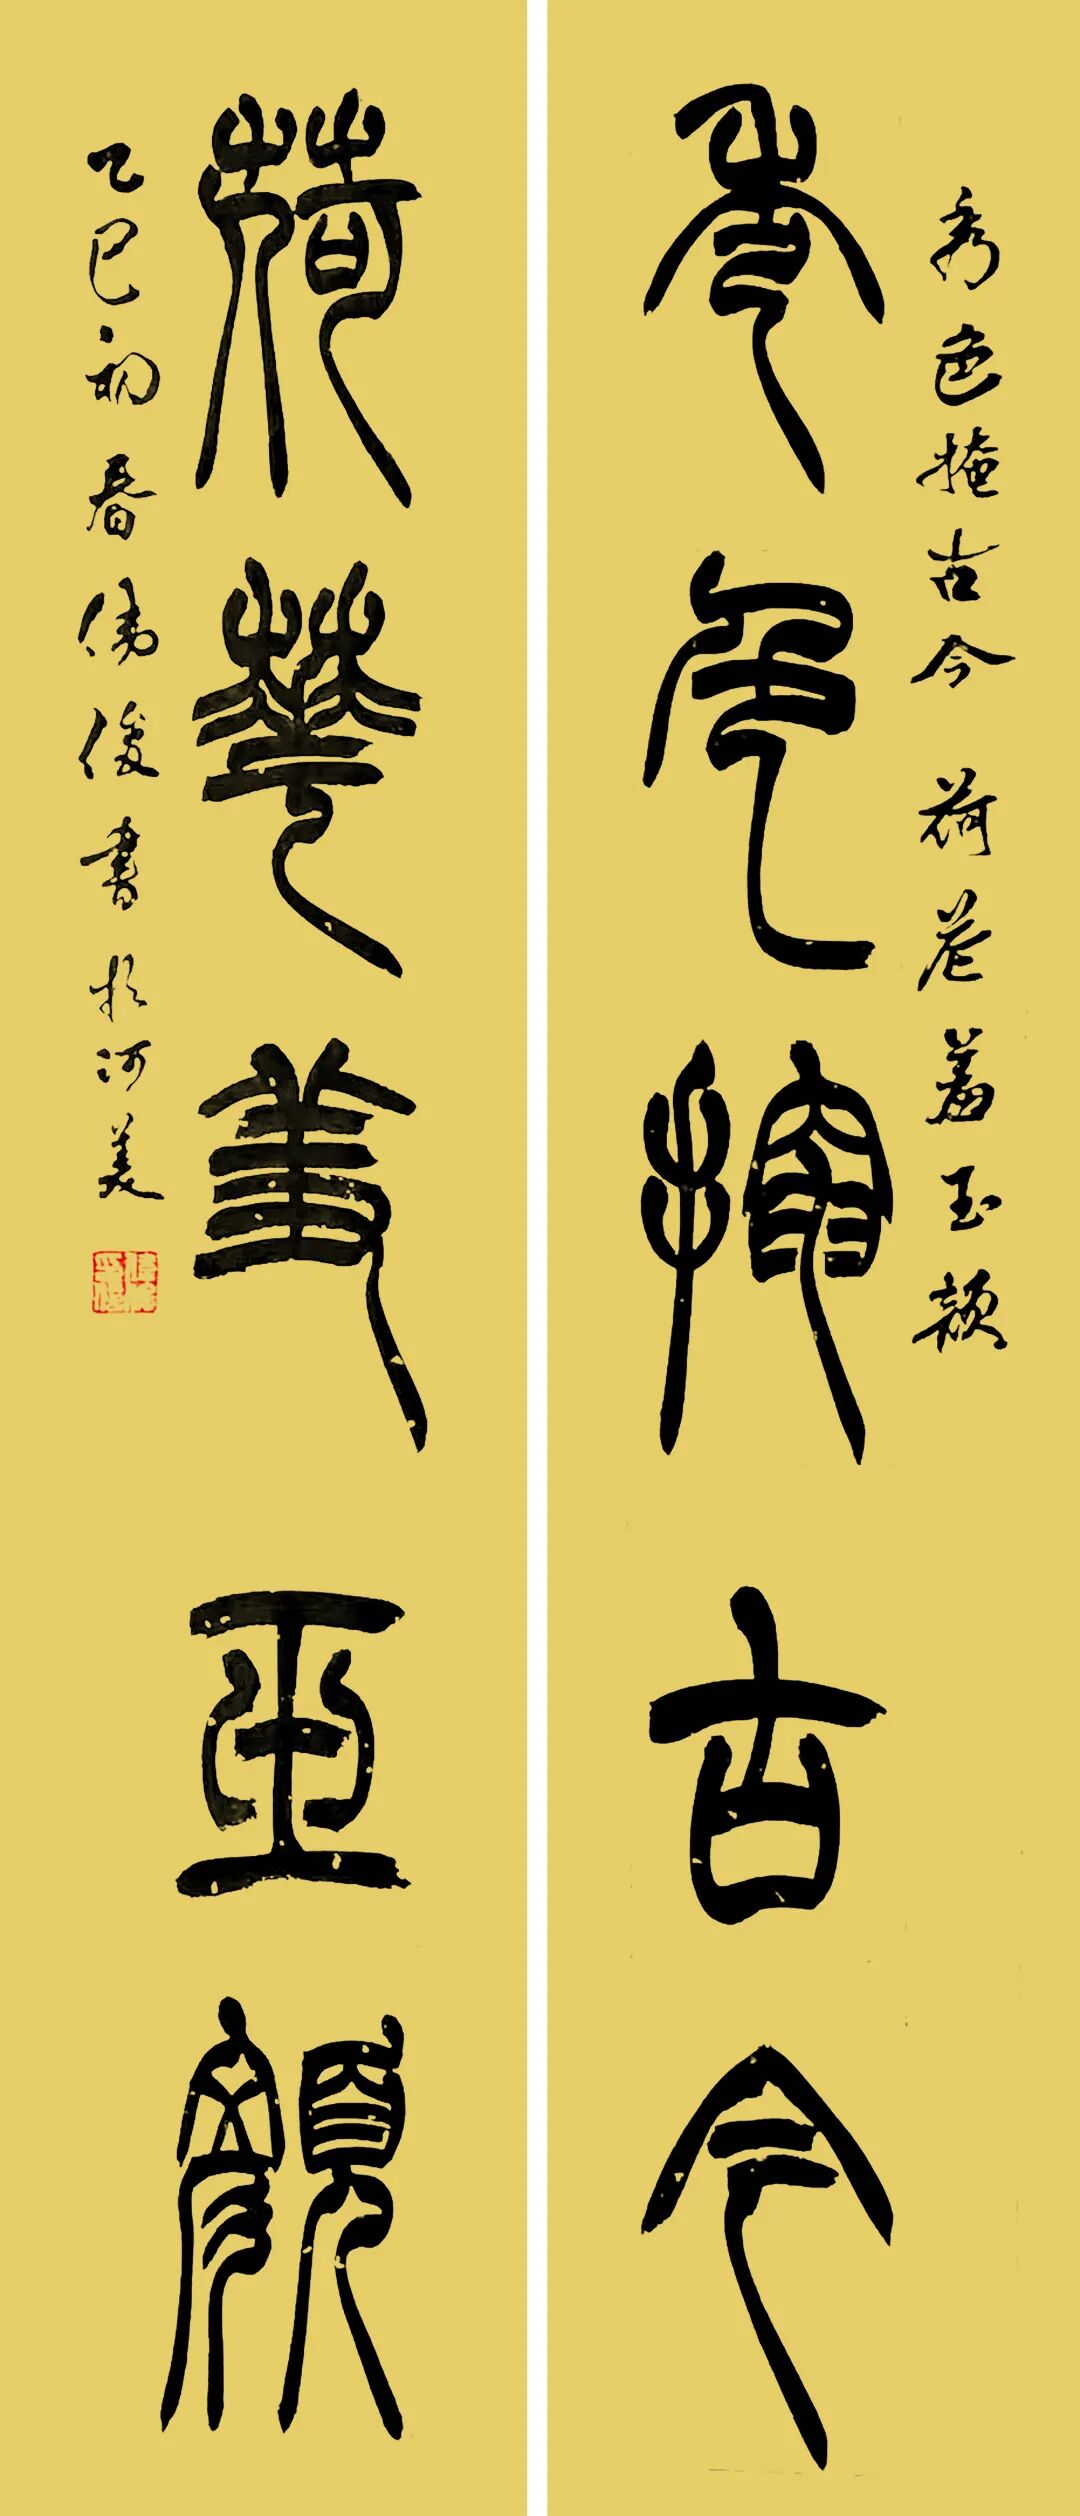 秀色掩古今荷花羞玉顏
秀色掩古今
荷華羞玉顏
乙巳初春偉俊書於河美